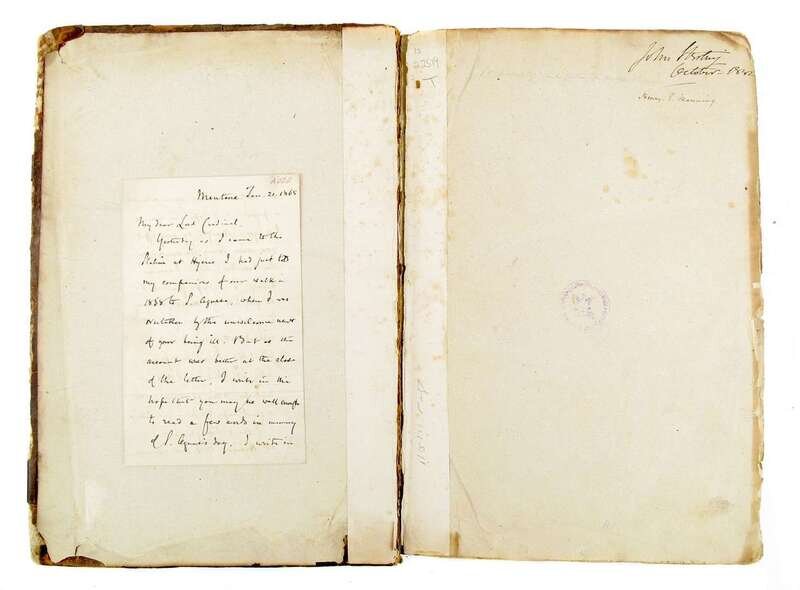 Mentone Jan. 21, 1865
My dear Lord Cardinal,
Yesterday as I came to the
Station at Hyeres I had just told
my companions of our walk in
18 to S. Agnese, when I was
overtaken by the unwelcome news
of your being ill. But as the
account was better at the close
of the letter, I write in the
hope that you may be well enough
to read a few words in memory
of S. Agnes's day. I write in
John
October
Henry E. Manning